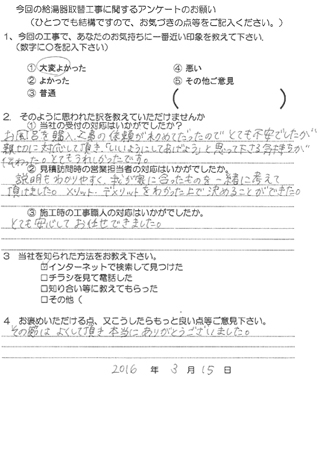 今回の給湯器取替工事に関するアンケートのお願い
(ひとつでも結構ですので、お気づきの点等をご記入ください。)
1、今回の工事で、あなたのお気持ちに一番近い印象を教えて下さい。
(数字に○を記入下さい)
① 大変よかった ④ 悪い
② よかった ⑤ その他ご意見
③ 普通 ( )
2. そのように思われた訳を教えていただけませんか
① 当社の受付の対応はいかがでしたか?
お風呂を購入 の依頼がわめてだったので とても不安でしたが
親切に対応して頂き、「いいようにしてあげよう」と思って下さる気持ちが
伝わった。とてもうれしかったです。
② 見積訪問時の営業担当者の対応はいかがでしたか。
説明もわかりやすく、我が家に合ったものを一緒に考えて
頂けました。メリット、デメリットをわかった上で決めることができた。
③ 施工時の工事職人の対応はいかがでしたか。
とても安心して お任せできました。
3 当社を知られた方法をお教え下さい。
☑インターネットで検索して見つけた
□チラシを見て電話した
□知り合い等に教えてもらった
□その他(
4 お褒めいただける点、又こうしたらもっと良い点等ご意見下さい。
その節は よくして頂き 本当に ありがとうございました。
2016 年 3 月 15 日